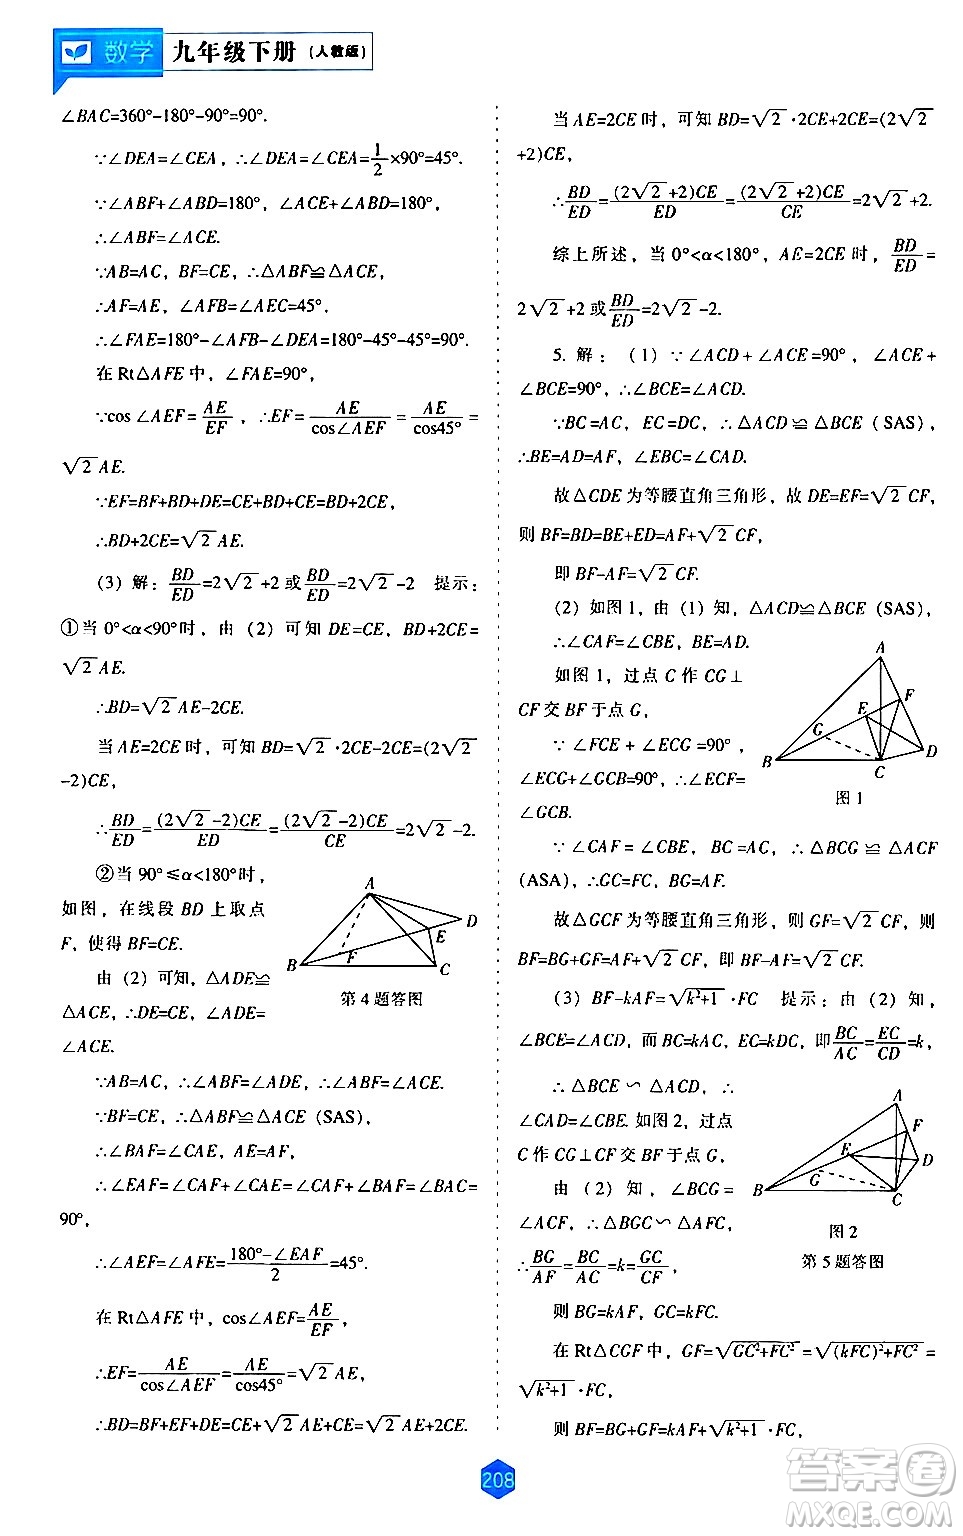 数学 九年级下册（人教版）
∠BAC=360°-180°-90°=90°.
∵∠DEA=∠CEA，∴∠DEA=∠CEA=1/2×90°=45°.
∵∠ABF+∠ABD=180°，∠ACE+∠ABD=180°，
∴∠ABF=∠ACE.
∵AB=AC，BF=CE，∴△ABF≌△ACE，
∴AF=AE，∠AFB=∠AEC=45°，
∴∠FAE=180°-∠AFB-∠DEA=180°-45°-45°=90°.
在Rt△AFE中，∠FAE=90°，
∵cos∠AEF=AE/EF，∴EF=AE/cos∠AEF=AE/cos45°=
√2AE.
∵EF=BF+BD+DE=CE+BD+CE=BD+2CE，
∴BD+2CE=√2AE.
(3) 解：BD/ED=2√2+2或BD/ED=2√2-2 提示：
①当0°<α<90°时，由（2）可知DE=CE，BD+2CE=
√2AE.
∴BD=√2AE-2CE.
当AE=2CE时，可知BD=√2·2CE-2CE=(2√2
-2)CE，
∴BD/ED=(2√2-2)CE/ED=(2√2-2)CE/CE=2√2-2.
②当90°≤α<180°时，
如图，在线段BD上取点
F，使得BF=CE.
由（2）可知，△ADE≌
△ACE，∴DE=CE，∠ADE=
∠ACE.
A
D
E
F
B
C
第4题答图
∵AB=AC，∴∠ABF=∠ADE，∴∠ABF=∠ACE.
∵BF=CE，∴△ABF≌△ACE (SAS)，
∴∠BAF=∠CAE，AE=AF.
∴∠EAF=∠CAF+∠CAE=∠CAF+∠BAF=∠BAC=
90°，
∴∠AEF=∠AFE=(180°-∠EAF)/2=45°.
在Rt△AFE中，cos∠AEF=AE/EF，
∴EF=AE/cos∠AEF=AE/cos45°=√2AE，
∴BD=BF+EF+DE=CE+√2AE+CE=√2AE+2CE.
当AE=2CE时，可知BD=√2·2CE+2CE=(2√2
+2)CE，
∴BD/ED=(2√2+2)CE/ED=(2√2+2)CE/CE=2√2+2.
综上所述，当0°<α<180°，AE=2CE时，BD/ED=
2√2+2或BD/ED=2√2-2.
5. 解：（1）∵∠ACD+∠ACE=90°，∠ACE+
∠BCE=90°，∴∠BCE=∠ACD.
∵BC=AC，EC=DC，∴△ACD≌△BCE（SAS），
∴BE=AD=AF，∠EBC=∠CAD.
故△CDE为等腰直角三角形，故DE=EF=√2CF，
则BF=BD=BE+ED=AF+√2CF，
即BF-AF=√2CF.
（2）如图1，由（1）知，△ACD≌△BCE (SAS)，
∴∠CAF=∠CBE，BE=AD.
如图1，过点C作CG⊥
CF交BF于点G，
∵∠FCE+∠ECG=90°，
∠ECG+∠GCB=90°，∴∠ECF=
∠GCB.
A
F
E
G
D
B
C
图1
∵∠CAF=∠CBE，BC=AC，∴△BCG≌△ACF
(ASA)，∴GC=FC，BG=AF.
故△GCF为等腰直角三角形，则GF=√2CF，则
BF=BG+GF=AF+√2CF，即BF-AF=√2CF.
（3）BF-kAF=√(k²+1)·FC 提示：由（2）知，
∠BCE=∠ACD，而BC=kAC，EC=kDC，即BC/AC=EC/CD=k，
∴△BCE∽△ACD，∴
∠CAD=∠CBE. 如图2，过点
C作CG⊥CF交BF于点G，
由（2）知，∠BCG=
∠ACF，∴△BGC∽△AFC，
∴BG/AF=BC/AC=k=GC/CF，
则BG=kAF，GC=kFC.
A
F
E
D
G
B
C
图2
第5题答图
在Rt△CGF中，GF=√(GC²+FC²)=√((kFC)²+FC²)=
√(k²+1)·FC，
则BF=BG+GF=kAF+√(k²+1)·FC，
208
答案圈
MXQE.COM